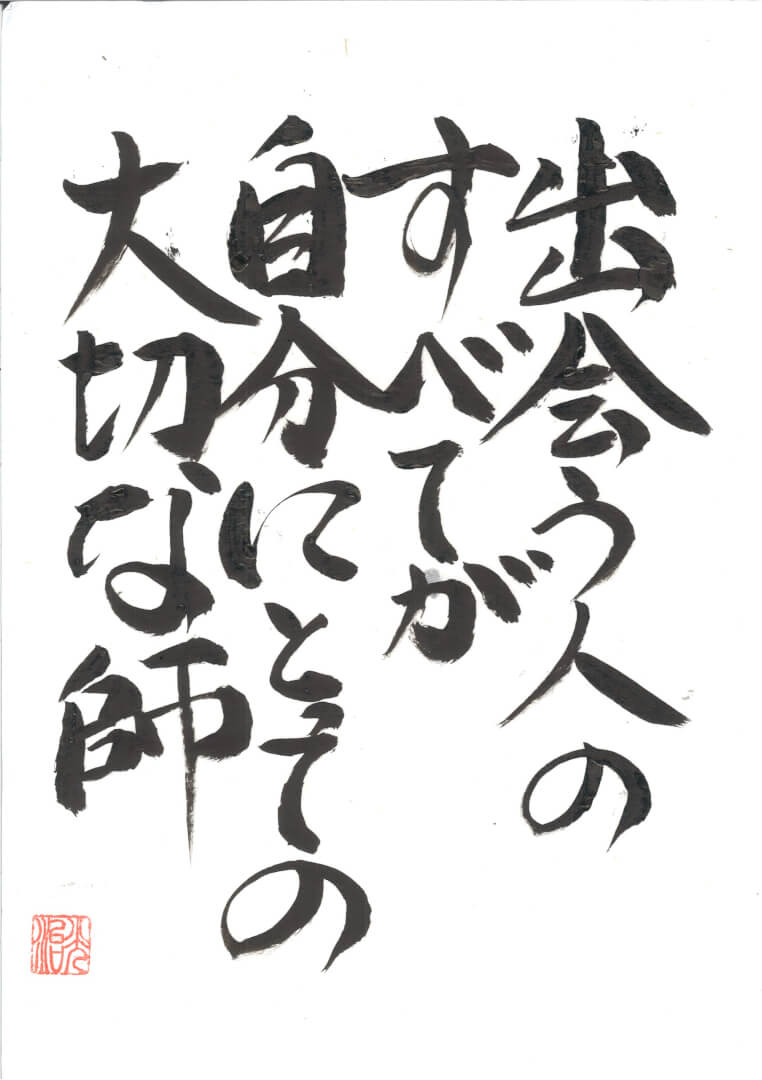 出会う人の
すべてが
自分にとっての
大切な師